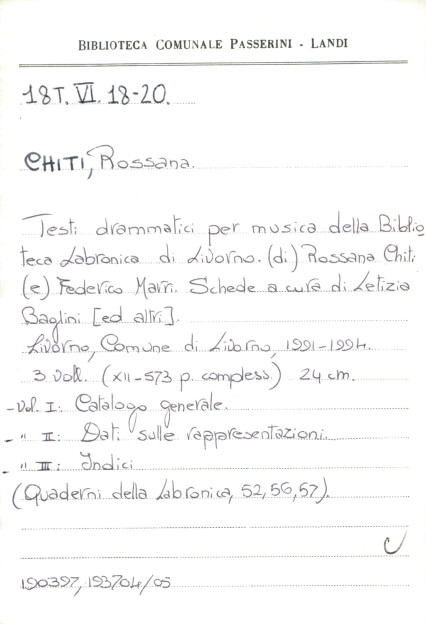 BIBLIOTECA COMUNALE PASSERINI - LANDI
18T. VI. 18-20.
CHITI, Rossana.
Testi drammatici per musica della Biblio
teca Labronica di Livorno. (di) Rossana Chiti
(e) Federico Marri. Schede a cura di Letizia
Baglini [ed altri].
Livorno, Comune di Livorno, 1991-1994.
3 voll. (XII-573 p. compless.) 24 cm.
- Vol. I: Catalogo generale.
- " II: Dati sulle rappresentazioni.
- " III: Indici
(Quaderni della Labronica, 52, 56, 57).
190397, 193704/05